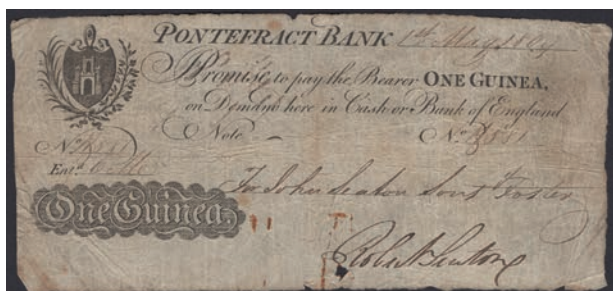 PONTEFRACT BANK 1st May 18
I Promise to pay the Bearer ONE GUINEA,
on Demand here in Cash or Bank of England
Note - No 8551
No 8551
Ent.
For John Seaton Sons & Foster
One Guinea.
Robt Seaton